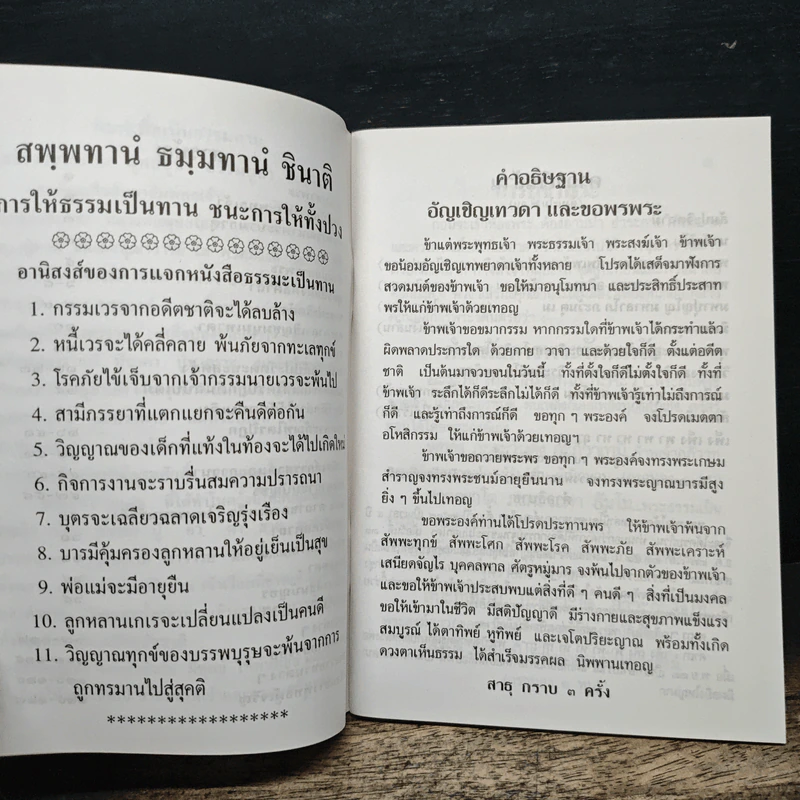 สพฺพทานํ ธมฺมทานํ ชินาติ
การให้ธรรมเป็นทาน ชนะการให้ทั้งปวง
อานิสงส์ของการแจกหนังสือธรรมะเป็นทาน
1. กรรมเวรจากอดีตชาติจะได้ลบล้าง
2. หนี้เวรจะได้คลี่คลาย พ้นภัยจากทะเลทุกข์
3. โรคภัยไข้เจ็บจากเจ้ากรรมนายเวรจะพ้นไป
4. สามีภรรยาที่แตกแยกจะคืนดีต่อกัน
5. วิญญาณของเด็กที่แท้งในท้องจะได้ไปเกิดใหม่
6. กิจการงานจะราบรื่นสมความปรารถนา
7. บุตรจะเฉลียวฉลาดเจริญรุ่งเรือง
8. บารมีคุ้มครองลูกหลานให้อยู่เย็นเป็นสุข
9. พ่อแม่จะมีอายุยืน
10. ลูกหลานเกเรจะเปลี่ยนแปลงเป็นคนดี
11. วิญญาณทุกข์ของบรรพบุรุษจะพ้นจากการ
ถูกทรมานไปสู่สุคติ
******************
คำอธิษฐาน
อัญเชิญเทวดา และขอพรพระ
ข้าแต่พระพุทธเจ้า พระธรรมเจ้า พระสงฆ์เจ้า ข้าพเจ้า
ขอน้อมอัญเชิญเทพยาดาเจ้าทั้งหลาย โปรดได้เสด็จมาฟังการ
สวดมนต์ของข้าพเจ้า ขอให้มาอนุโมทนา และประสิทธิ์ประสาท
พรให้แก่ข้าพเจ้าด้วยเทอญ
ข้าพเจ้าขอขมากรรม หากกรรมใดที่ข้าพเจ้าได้กระทำแล้ว
ผิดพลาดประการใด ด้วยกาย วาจา และด้วยใจก็ดี ตั้งแต่อดีต
ชาติ เป็นต้นมาจวบจนในวันนี้ ทั้งที่ตั้งใจก็ดีไม่ตั้งใจก็ดี ทั้งที่
ข้าพเจ้า ระลึกได้ก็ดีระลึกไม่ได้ก็ดี ทั้งที่ข้าพเจ้ารู้เท่าไม่ถึงการณ์
ก็ดี และรู้เท่าถึงการณ์ก็ดี ขอทุก ๆ พระองค์ จงโปรดเมตตา
อโหสิกรรม ให้แก่ข้าพเจ้าด้วยเทอญฯ
ข้าพเจ้าขอถวายพระพร ขอทุก ๆ พระองค์จงทรงพระเกษม
สำราญจงทรงพระชนม์อายุยืนนาน จงทรงพระญาณบารมีสูง
ยิ่ง ๆ ขึ้นไปเทอญ
ขอพระองค์ท่านได้โปรดประทานพร ให้ข้าพเจ้าพ้นจาก
สัพพะทุกข์ สัพพะโศก สัพพะโรค สัพพะภัย สัพพะเคราะห์
เสนียดจัญไร บุคคลพาล ศัตรูหมู่มาร จงพ้นไปจากตัวของข้าพเจ้า
และขอให้ข้าพเจ้าประสบพบแต่สิ่งที่ดี ๆ คนดี ๆ สิ่งที่เป็นมงคล
ขอให้เข้ามาในชีวิต มีสติปัญญาดี มีร่างกายและสุขภาพแข็งแรง
สมบูรณ์ ได้ตาทิพย์ หูทิพย์ และเจโตปริยะญาณ พร้อมทั้งเกิด
ดวงตาเห็นธรรม ได้สำเร็จมรรคผล นิพพานเทอญ
สาธุ กราบ ๓ ครั้ง